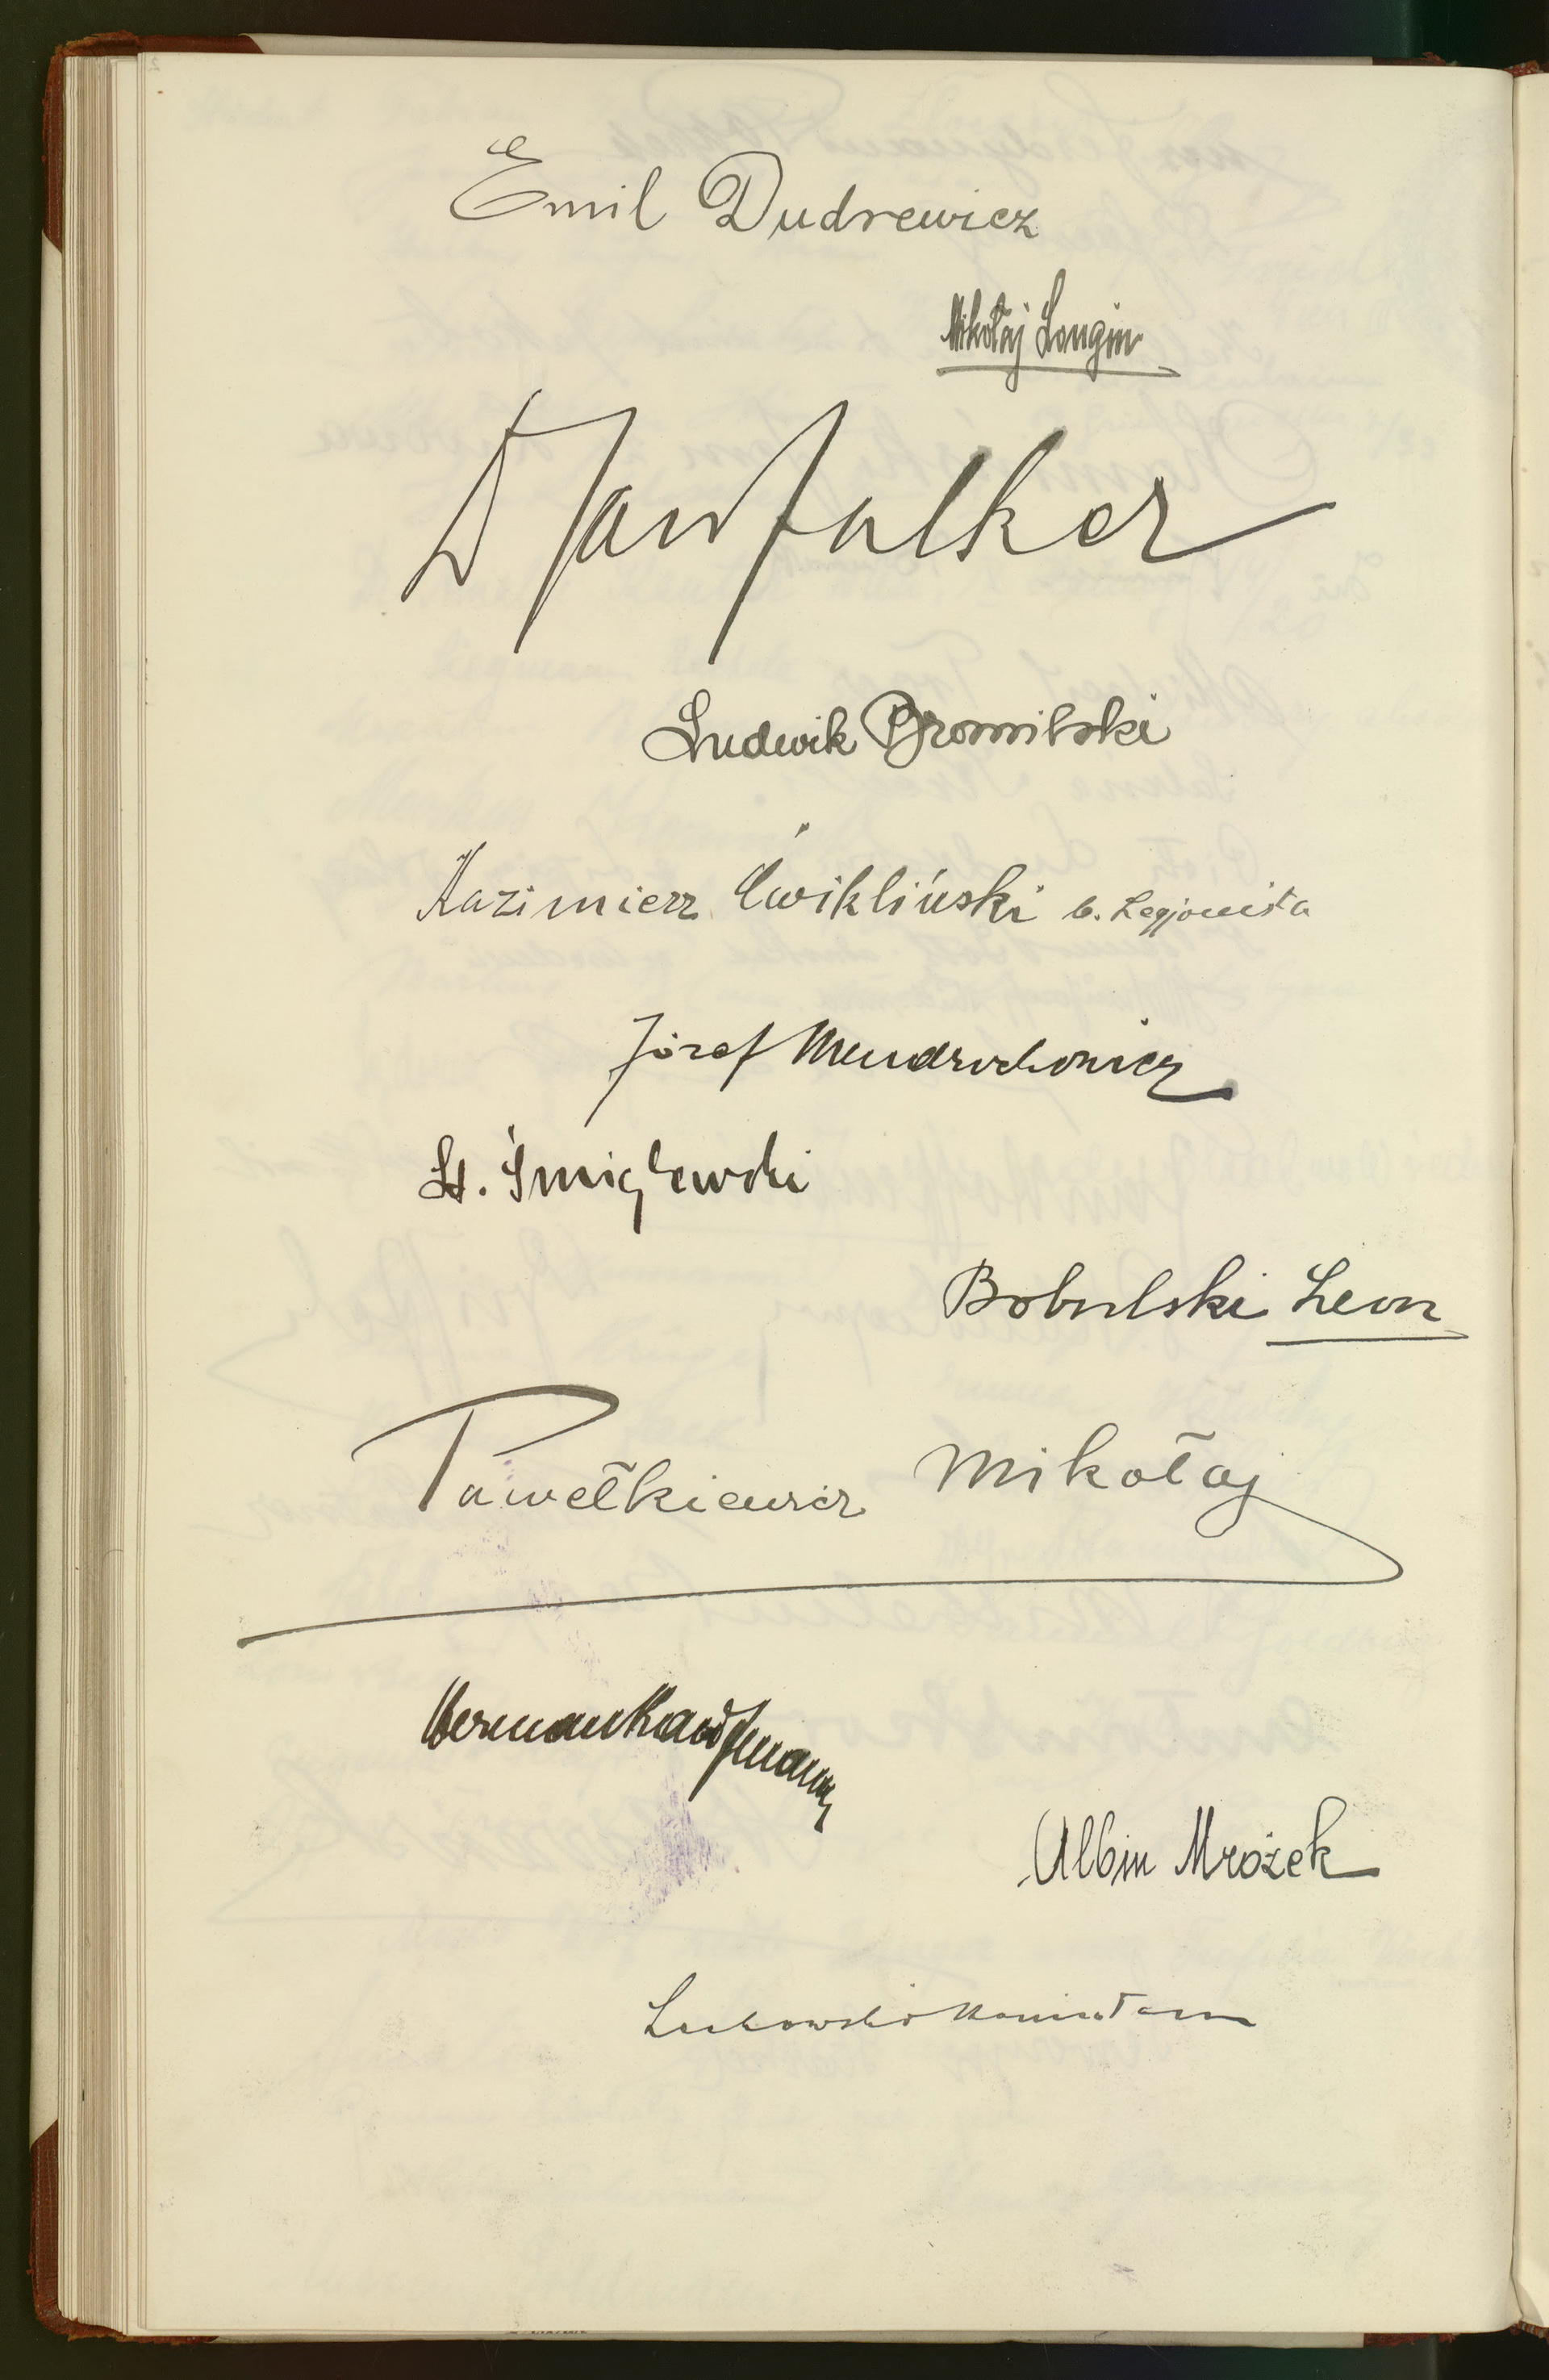 Emil Dudrewicz
Mikołaj Longin
Dr Jan Falker
Ludwik Bromilski
Kazimierz Ćwikliński b. Legjonista
Józef Mendrochowicz
St. Śmigłewski
Bobulski Leon
Pawełkiewicz Mikołaj
Herman Kaufmann
Albin Mrożek